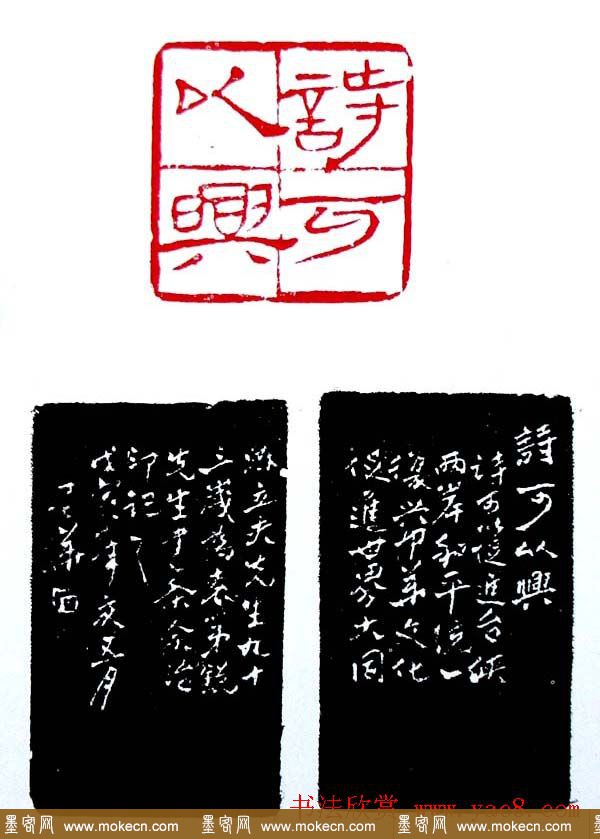 詩可
以興
詩可以興
詩可以促進台峽
两岸和平统一
復兴中華文化
促進世界大同
立夫先生九十
三歲為秦
先生書余治
印記之
戊寅年五月
书法欣赏 www.yac8.com
墨客网 www.mokecn.com 墨客网 www.mokecn.com 墨客网 www.mokecn.com